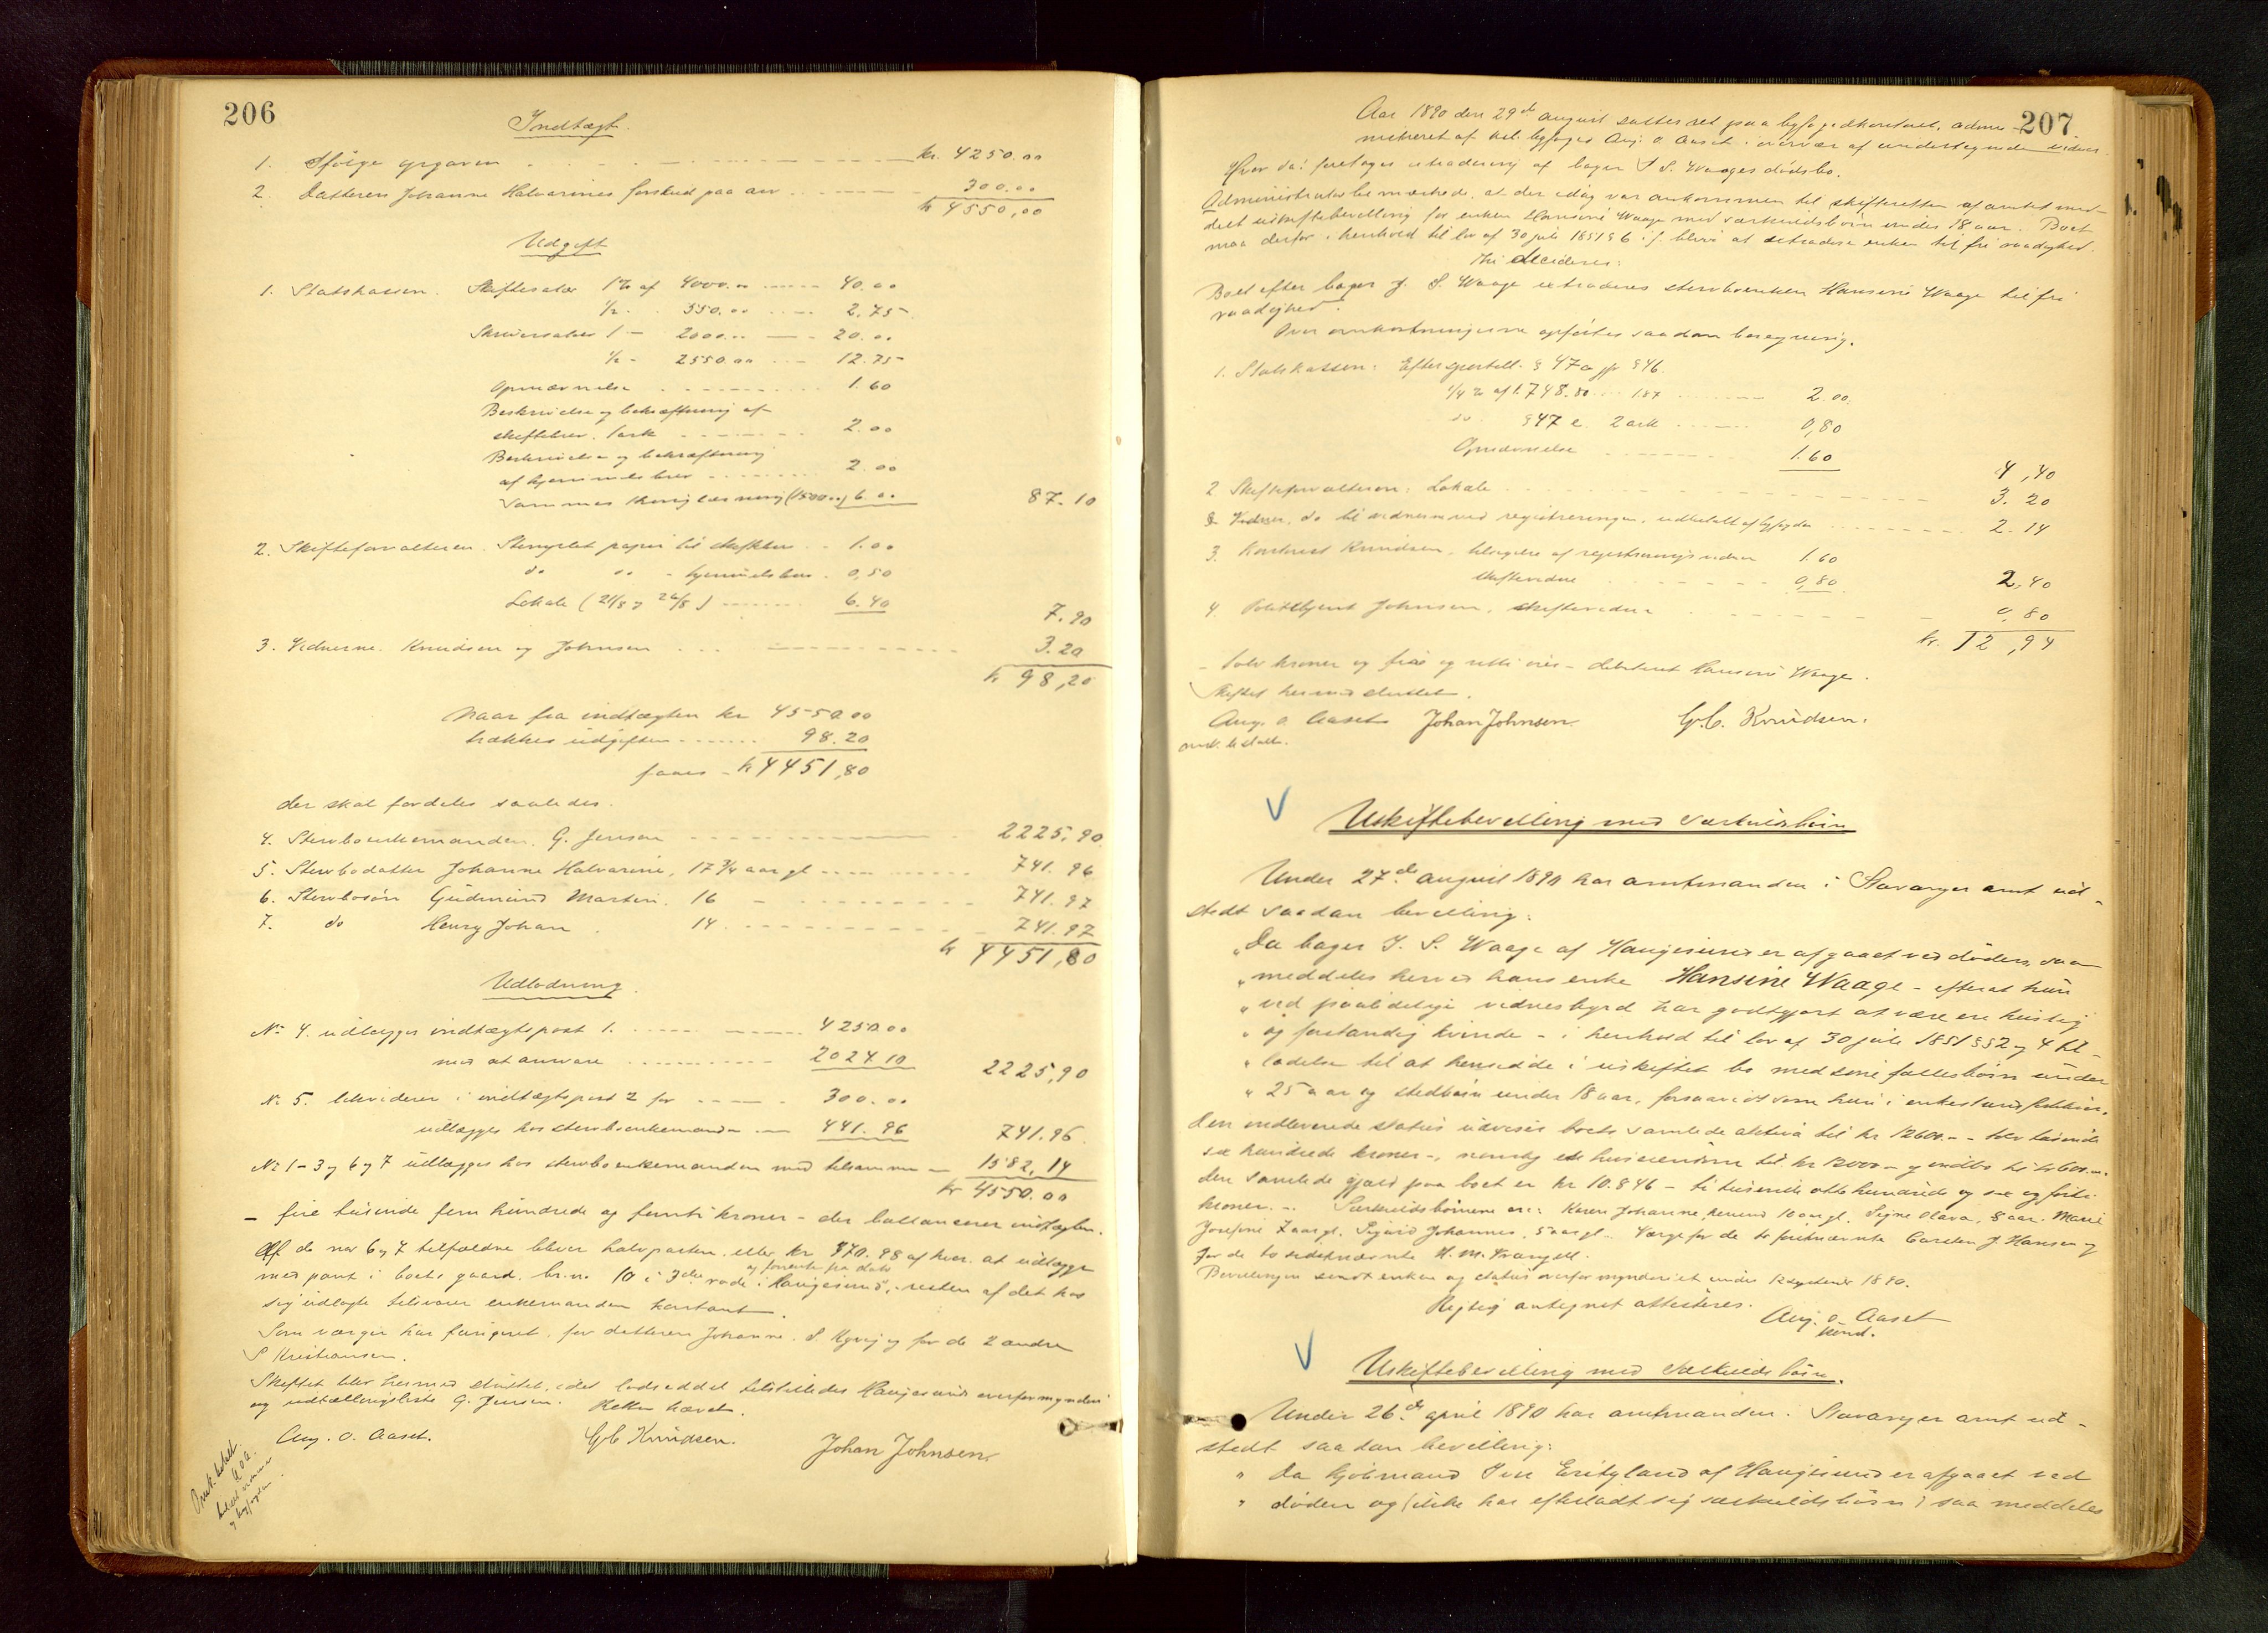 206
Indtægt.
1. Ifølge opgaven kr. 4250.00
2. Datteren Johanne Halvarines forskud paa arv 300.00
kr 4550,00
Udgift
1. Statskassen. Skiftesalær 1% af 4000.00 40.00
1/2 - 550.00 2.75
Skriversalær 1 - 2000.00 20.00
1/2 - 2550.00 12.75
Opnævnelse 1.60
Beskrivelse og bekræftning af
skiftebrev. 1 ark 2.00
Beskrivelse og bekræftning
af hjemmelsbrev 2.00
Sammes thinglæsning (1500.00) 6.00 87.10
2. Skifteforvalteren. Stemplet papir til skiftebrev 1.00
do do - hjemmelsbrev. 0,50
Lokale (21/8 og 26/8) 6.40
7.90
3. Vidnerne. Knudsen og Johnsen 3.20
kr 98,20
Naar fra indtægten kr 4550.00
trækkes udgiften 98.20
faaes - kr 4451,80
der skal fordeles saaledes.
4. Stervboenkemanden, G. Jensen 2225,90
5. Stervbodatter Johanne Halvarine, 17 3/4 aar gl 741.96
6. Stervbosøn Gudmund Martin. 16 - 741.97
7. do Henry Johan 14. 741.97
kr 4451,80
Udlodning.
No 4. udlægges indtægtspost 1. 4250.00
mod at ansvare 2024.10 2225,90
No 5. likviderer i indtægtspost 2 for 300.00
udlægges hos stervboenkemanden 441.96 741.96.
No 1-3 og 6 og 7 udlægges hos stervboenkemanden med tilsammen 1582,14
kr 4550.00
- fire tusinde fem hundrede og femti kroner - der ballancerer indtægten.
Af de nr 6 og 7 tilfaldne bliver halvparten, eller kr 370.98 af hver. at udlægge
og forrente fra dato
med pant i boets gaard. br.no. 10 i 3die rode i Haugesund, - resten af det hos
sig udlagte tilsvarer enkemanden kontant.
Som værger har fungeret, for datteren Johanne. S. og for de 2 andre
S Kristiansen.
Skiftet blev hermed sluttet, idet lodseddel tilstilledes Haugesunds overformynderi
og udtællingsliste G. Jensen. Retten hævet.
Aug. O. Aaset. GC Knudsen. Johan Johnsen.
Omk. betalt.
AOA.
betalt vidnerne
og byfogden.
207
Aar 1890 den 29de august sattes ret paa byfogedkontoret, admi-
nistreret af byfoged Aug. O. Aaset i overvær af undertegnede vidner.
Hvor da: foretoges extradering af bager J S. Waages dødsbo.
Administrator bemærkede, at der idag var ankommen til skifteretten af amtet med-
delt uskiftebevilling for enken Hansine Waage med særkuldsbørn under 18 aar. Boet
maa derfor i henhold til lov af 30 juli 1851 § 6 i f. blive at extradere enken til fri raadighed.
Thi decideres:
Boet efter bager J. S. Waage extraderes stervboenken Hansine Waage til fri
raadighed.
Over omkostningerne opførtes saadan beregning.
1. Statskassen: Efter sportell. § 47 a jfr § 46.
1/4 % af 1.748.80 1.87 2.00
do. § 47 c. 2 ark 0,80
Opnævnelse 1.60
4,40
2 Skifteforvalteren: Lokale 3.20
do til vidnerne ved registreringen, udbetalt af byfogden 2.14
3. Kontorist Knudsen, tilsigelse af registreringsvidner 1.60
skiftevidne 0,80 2,40
4. Politibetjent Johnsen, skiftevidne 0,80
kr. 12,94
- tolv kroner og fire og nitti øre - debiteret Hansine Waage.
Skiftet hermed sluttet.
Aug. O. Aaset Johan Johnsen. GC. Knudsen.
omk. betalt.
Uskiftebevilling med særkuldsbørn
Under 27de august 1890 har amtmanden i Stavanger amt ud-
stedt saadan bevilling:
"Da bager J. S. Waage af Haugesund er afgaaet ved døden, saa
"meddeles herved hans enke Hansine Waage - efterat hun
"ved paalidelige vidnesbyrd har godtgjort at være en huslig
"og forstandig kvinde - i henhold til lov af 30 juli 1851 §§ 2 og 4 til-
"ladelse til at hensidde i uskiftet bo med sine fællesbørn under
"25 aar og stedbørn under 18 aar, forsaavidt som hun i enkestand forbliver.
Den indleverede status udviser boets samlede aktiva til kr 12600.- - tolv tusinde
sex hundrede kroner -, nemlig huseiendom til kr 12000 - og indbo til kr 600.-.
den samlede gjæld paa boet er kr 10.846 - ti tusinde otte hundrede og sex og førti
kroner. -. Særkuldsbørnene er: Karen Johanne, 10 aar gl. Signe Olava, 8 aar. Marie
Josefine 7 aar gl. Sigurd Johannes, 5 aar gl. - Værge for de to førstnævnte Carsten J. Hansen og
for de to sidstnævnte H. M. Wrangell.
Bevillingen sendt enken og status overformynderiet under 12 september 1890.
Rigtig antegnet attesteres.
Aug. O. Aaset
const.
Uskiftebevilling med særkuldsbørn.
Under 26de april 1890 har amtmanden i Stavanger amt ud-
stedt saadan bevilling:
" Da kjøbmand af Haugesund er afgaaet ved
" døden og (ikke har efterladt sig særkuldsbørn) saa meddeles